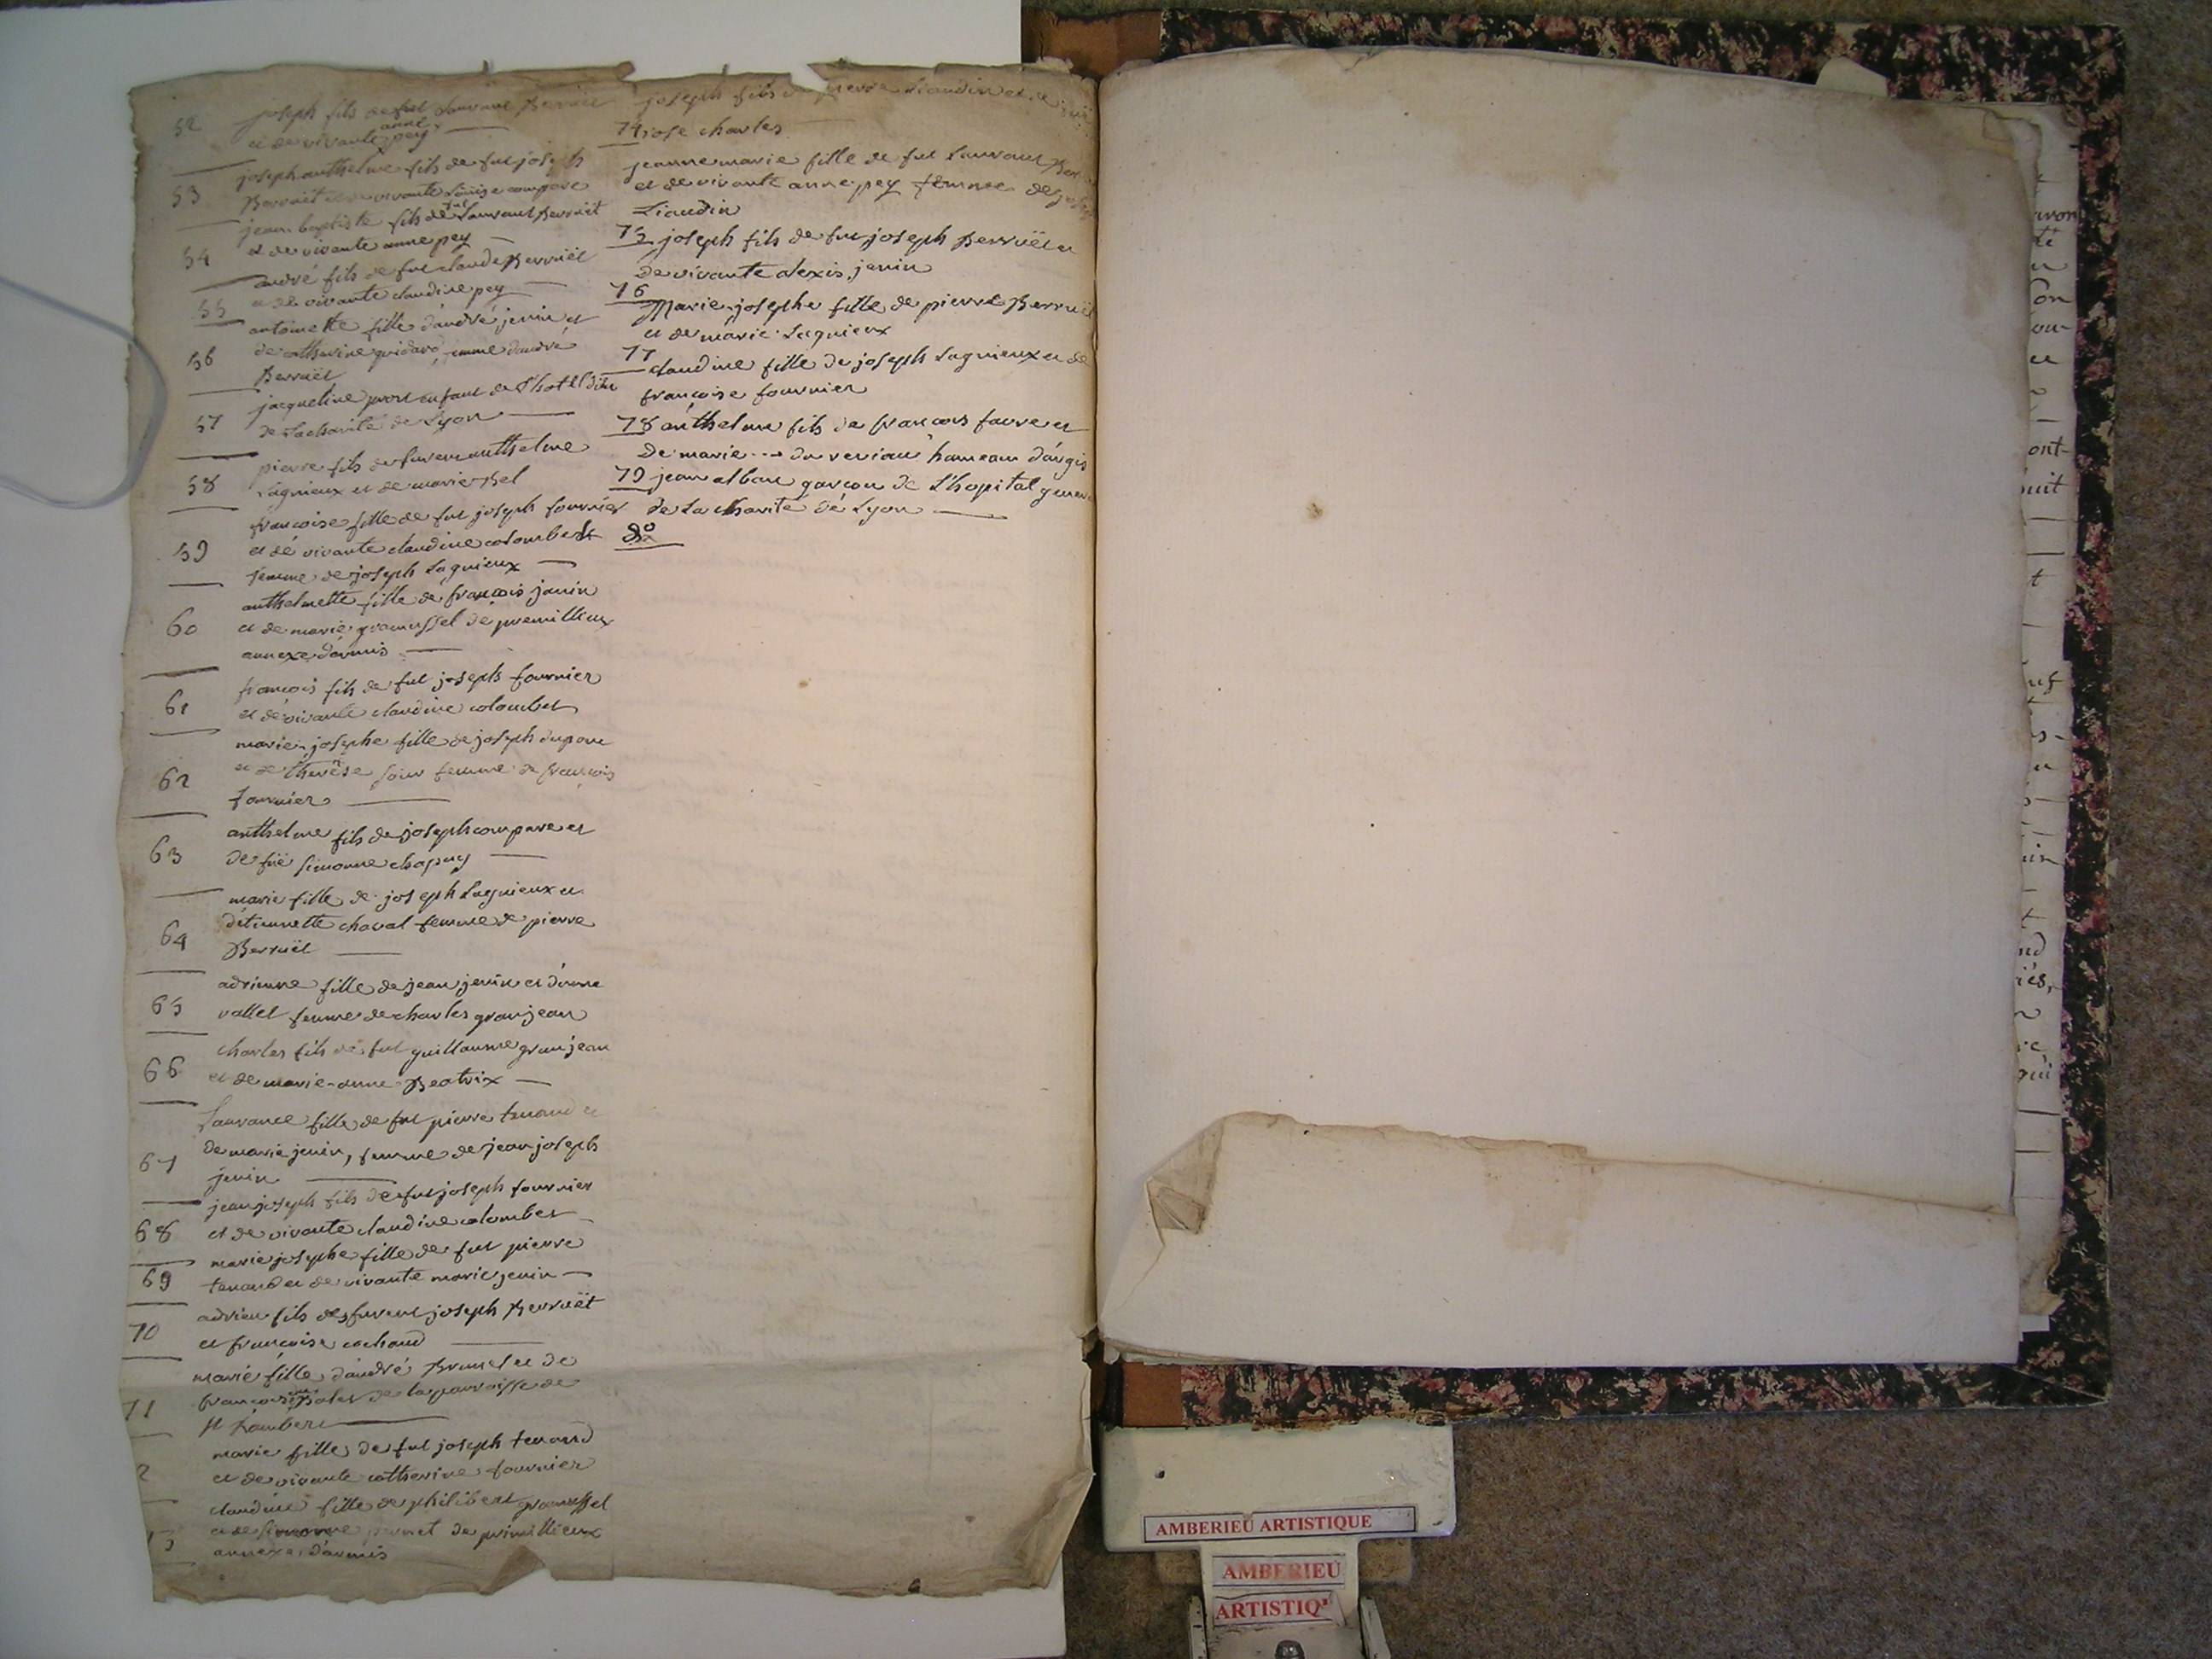 52 joseph fils de feu Laurant Berruët
et de vivante anne pey
53 joseph anthelme fils de feu joseph
Berruët et de vivante Loüise compare
54 jean baptiste fils de feu Laurant Berruët
et de vivante anne pey
55 andré fils de feu claude Berruët
et de vivante claudine pey
56 antoinette fille d'andré jenin et
de catherine guidard femme d'andré
Berruët
57 jacqueline enfant de l'hotel dieu
de La charité de Lyon
58 pierre fils de furent anthelme
Lagnieux et de marie Bel
59 francoise fille de feu joseph fournier
et de vivante claudine colombet
femme de joseph Lagnieux
60 anthelmette fille de francois janin
et de marie gramussel de premillieux
annexe d'armis
61 francois fils de feu joseph fournier
et de vivante claudine colombet
62 marie josephe fille de joseph
et de therese femme de francois
fournier
63 anthelme fils de joseph compare et
de füe simonne chapuy
64 marie fille de joseph Lagnieux et
d'etiennette chaval femme de pierre
Berruët
65 adrienne fille de jean jenin et d'anne
vallet femme de charles granjean
66 charles fils de feu guillaume granjean
et de marie-anne Beatrix
67 Laurance fille de feu pierre tenand et
de marie jenin, femme de jean joseph
jenin
68 jean joseph fils de feu joseph fournier
et de vivante claudine colombet
69 marie josephe fille de feu pierre
tenand et de vivante marie jenin
70 adrien fils de furent joseph Berruët
et francoise cochand
71 marie fille d'andré Brunel et de
francoise de la parroisse de
st Rambert
2 marie fille de feu joseph tenand
et de vivante catherine fournier
3 claudine fille de philibert gramussel
et de simonne de primillieux
annexe d'armis
joseph fils de pierre Liaudin et de
74 rose charles
jeanne marie fille de feu Laurant Ber
et de vivante anne pey femme de joseph
Liaudin
75 joseph fils de feu joseph Berruët et
de vivante alexis jenin
76 Marie josephe fille de pierre Berruët
et de marie Lagnieux
77 claudine fille de joseph Lagnieux et de
francoise fournier
78 anthelme fils de francois favre et
De marie --- du hameau d'angis
79 jean albane garcon de L'hopital gener
de La charité de Lyon
80
AMBERIEU ARTISTIQUE
AMBERIEU
ARTISTIQ